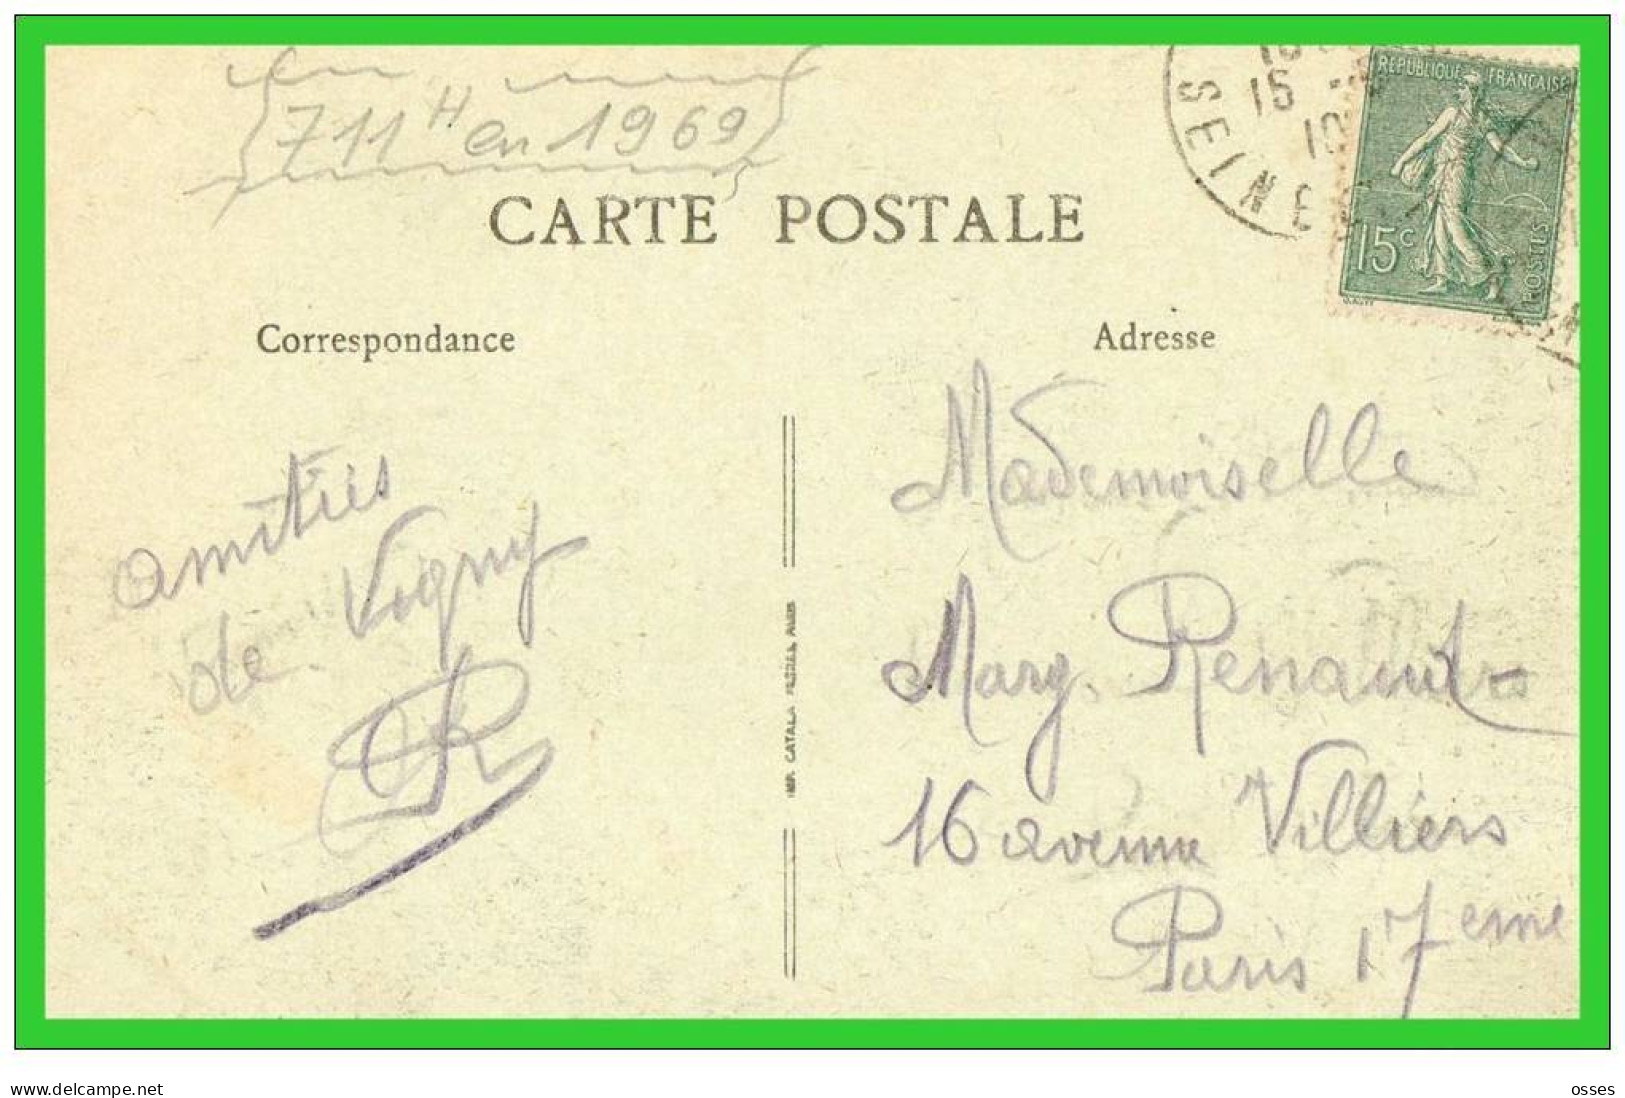 711 H en 1969
CARTE POSTALE
Correspondance
Adresse
SEINE
15
10
REPUBLIQUE FRANÇAISE
15c
POSTES
amitiés
de Vigny
R
Mademoiselle
Marg. Renault
16 avenue Villiers
Paris 17eme
IMP. CATALA FRERES, PARIS
www.delcampe.net
osses